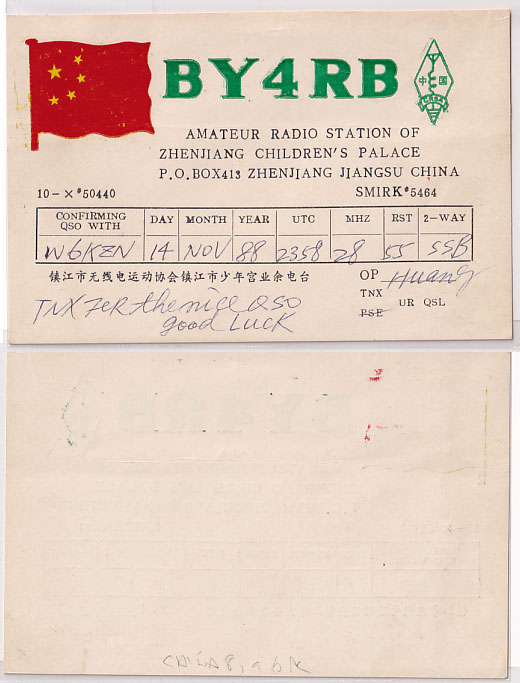 BY4RB
中 国
CRSA
AMATEUR RADIO STATION OF
ZHENJIANG CHILDREN'S PALACE
P.O.BOX413 ZHENJIANG JIANGSU CHINA
10-X#50440 SMIRK#5464
CONFIRMING QSO WITH DAY MONTH YEAR UTC MHZ RST 2-WAY
W6KZN 14 NOV 88 2358 28 55 SSB
镇江市无线电运动协会镇江市少年宫业余电台
OP Huang
TNX
PSE
UR QSL
TNX FER the nice QSO
good Luck